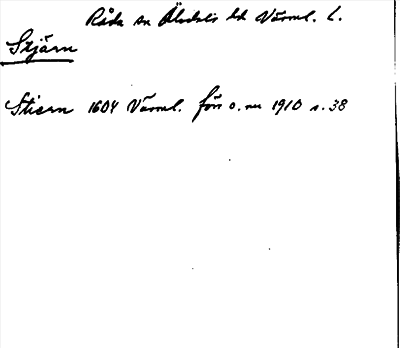 Råda sn Älvdals hd Värml. l.
Stjärn
Stiern 1604 Värml. förr o. nu 1910 s. 38